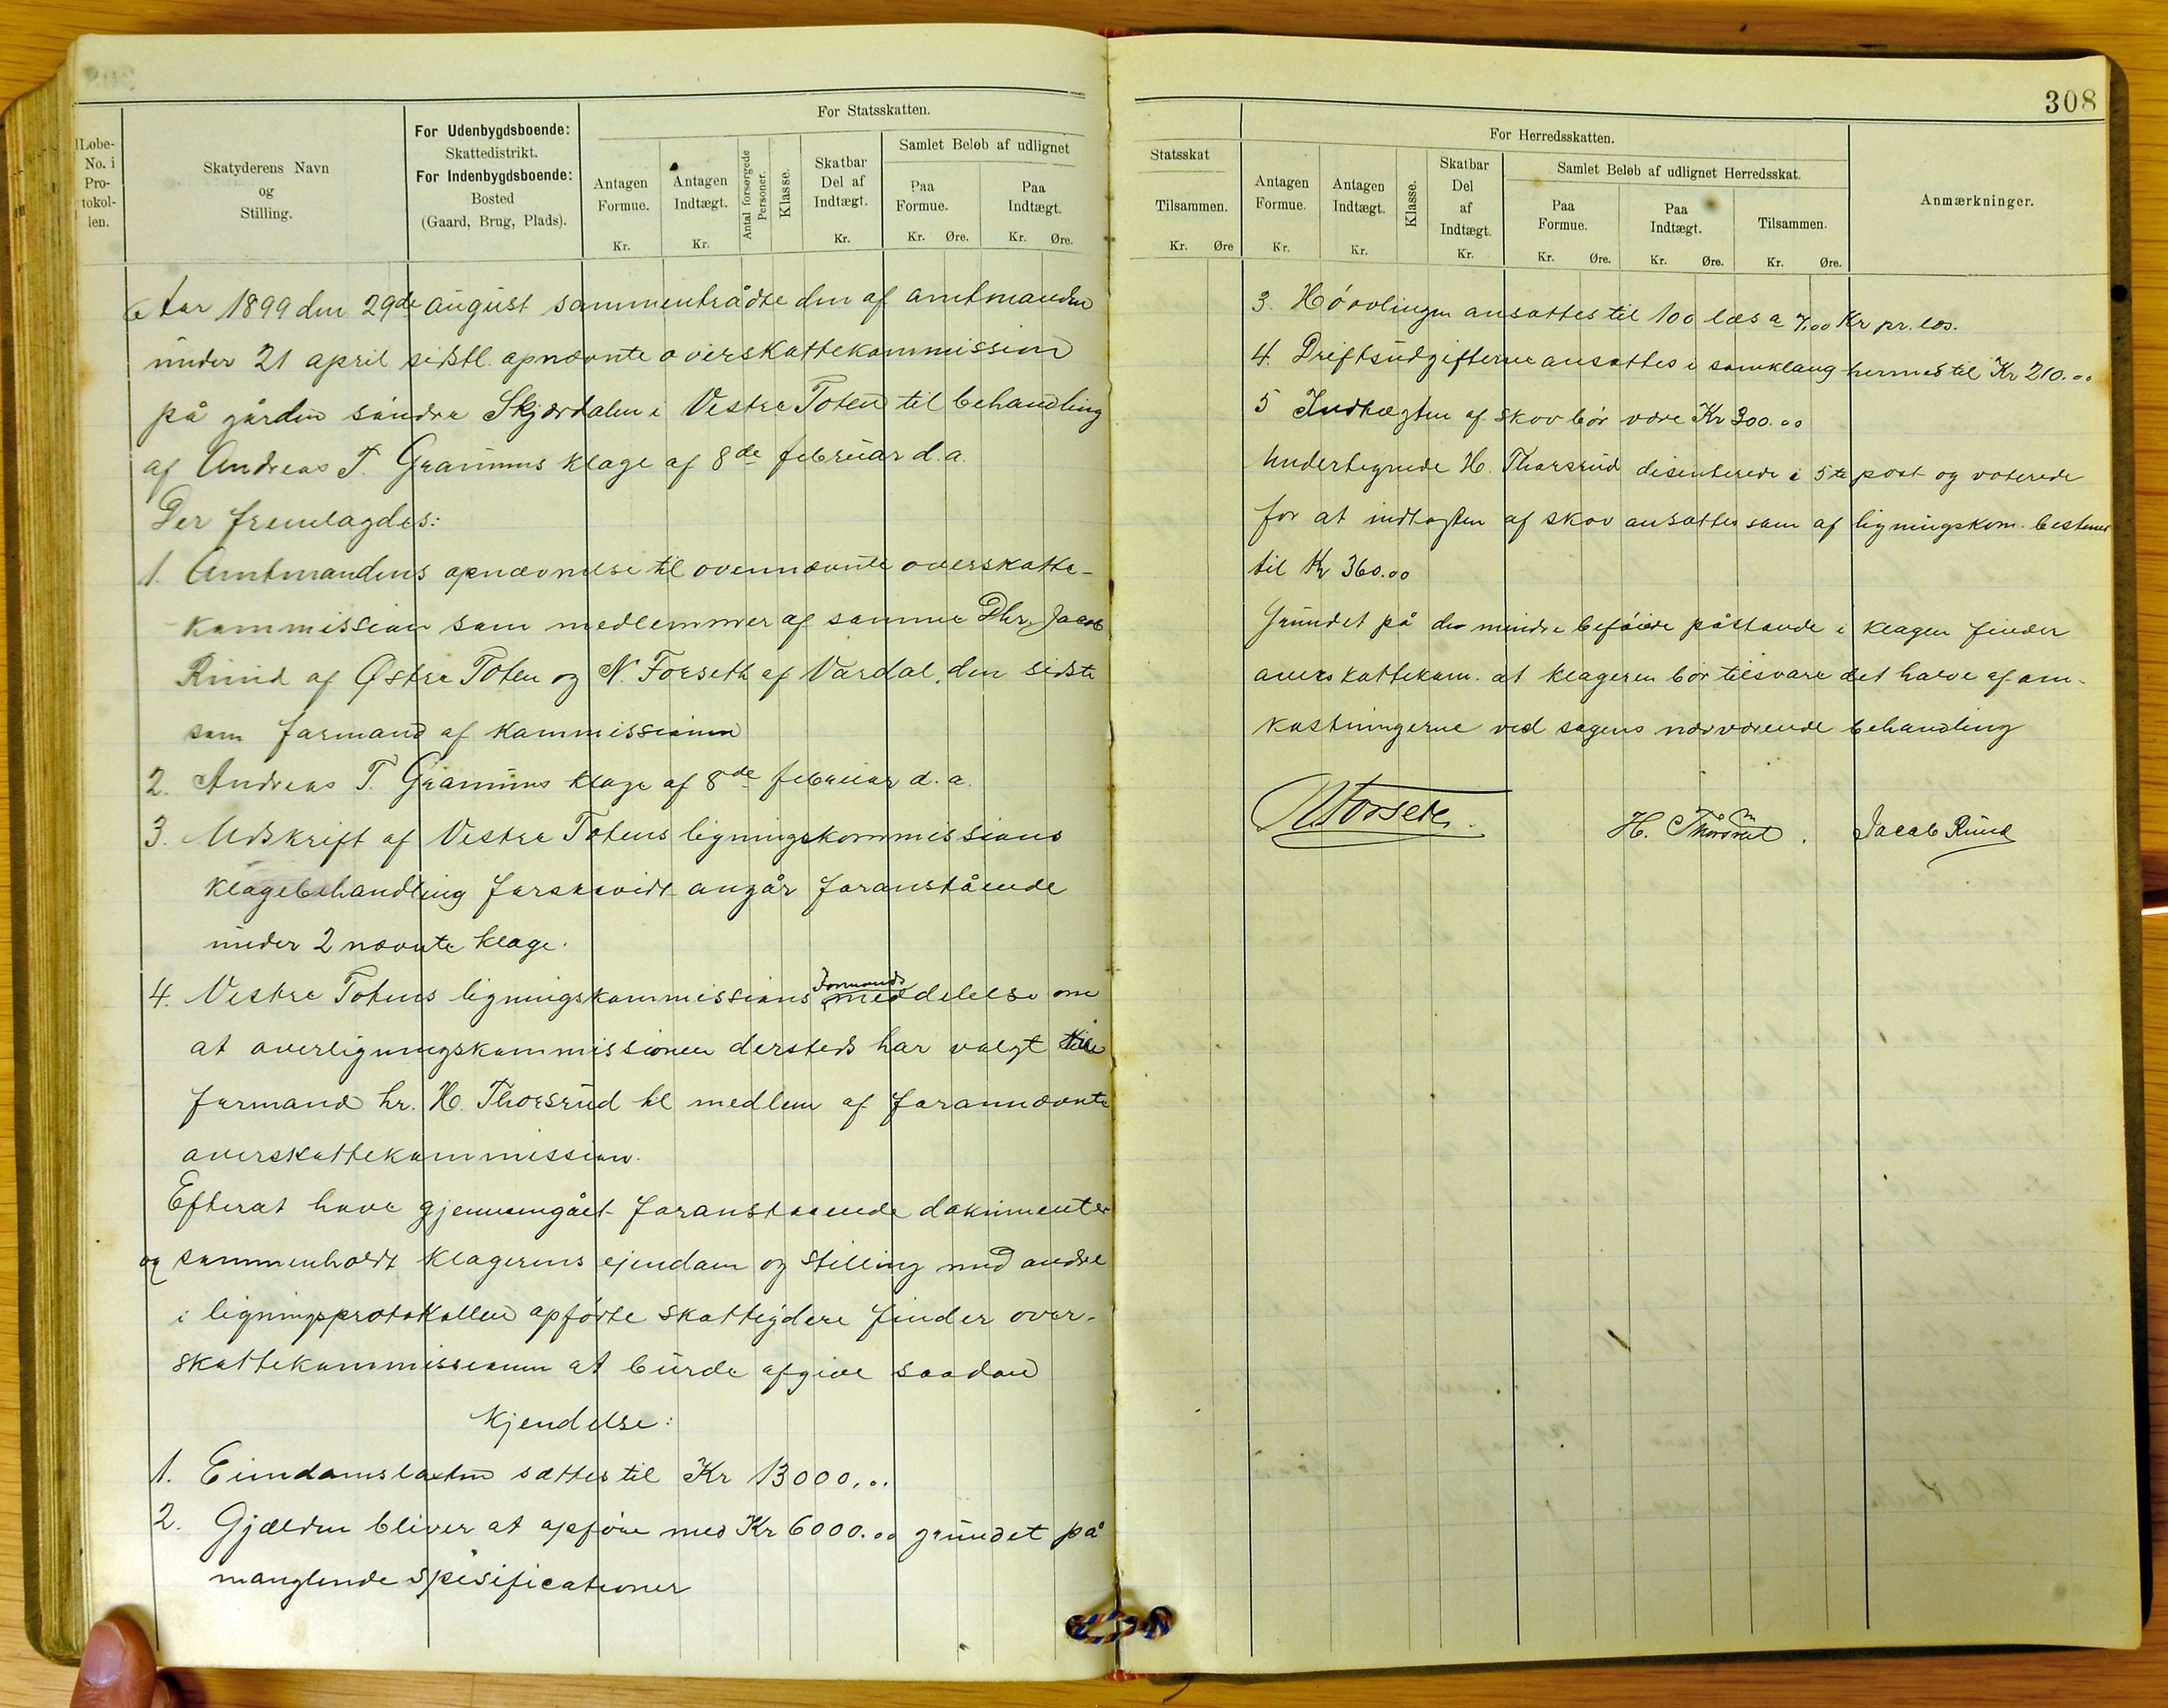 308
Løbe-
No. i
Pro-
tokol-
len.
Skatyderens Navn
og
Stilling.
For Udenbygdsboende:
Skattedistrikt.
For Indenbygdsboende:
Bosted
(Gaard, Brug, Plads).
For Statsskatten.
Antagen
Formue.
Kr.
Antagen
Indtægt.
Kr.
Antal forsørgede
Personer.
Klasse.
Skatbar
Del af
Indtægt.
Kr.
Samlet Beløb af udlignet
Paa
Formue.
Kr. Øre.
Paa
Indtægt.
Kr. Øre.
Aar 1899 den 29de august sammentrådte den af amtmanden
under 21 april sidstl. opnævnte overskattekommission
på gården søndre Skjærdalen i Vestre Toten til behandling
af Andreas T. Gaarnnes klage af 8de februar d.a.
Der fremlagdes:
1. Amtmandens opnævnelse til ovennævnte overskatte-
kommission som medlemmer af samme Dhr. Jacob
Rund af Østre Toten og N. Forseth af Vardal, den sidste
som formand af kommissionen
2. Andreas T. klage af 8de februar d.a.
3. Udskrift af Vestre Totens ligningskommissions
klagebehandling forsaavidt angår foranstående
under 2 nævnte klage.
4. Vestre Totens ligningskommissions formands meddelelse om
at overligningskommissionen dersteds har valgt sin
formand hr. H. Thorsrud til medlem af forannævnte
overskattekommission.
Efterat have gjennemgået foranstaaende dokumenter
og sammenholdt klagerens ejendom og stilling med andre
i ligningsprotokollen opførte skatteydere finder over-
skattekommissionen at burde afgive saadan
Kjendelse:
1. Eiendomslaxten sættes til Kr 13000,00
2. Gjælden bliver at opføre med Kr 6000.00 grundet på
manglende spesificationer
Statsskat
Tilsammen.
Kr. Øre
For Herredsskatten.
Antagen
Formue.
Kr.
Antagen
Indtægt.
Kr.
Klasse.
Skatbar
Del
af
Indtægt.
Kr.
Samlet Beløb af udlignet Herredsskat.
Paa
Formue.
Kr. Øre.
Paa
Indtægt.
Kr. Øre.
Tilsammen.
Kr. Øre.
Anmærkninger.
3. Høavlingen ansættes til 100 læs a 7,00 Kr pr. læs.
4. Driftsudgifterne ansættes i samklang hermed til Kr 210.00
5 Indtægten af skov bør være Kr 300.00
Undertegnede H. Thorsrud disenterede i 5te post og voterede
for at indtægten af skov ansættes som af ligningskom. bestemt
til Kr 360.00
Grundet på de mindre beføiede påstande i klagen finder
overskattekom. at klageren bør tilsvare det halve af om-
kostningerne ved sagens nærværende behandling
N Forseth.
H. Thorsrud.
Jacob Rund